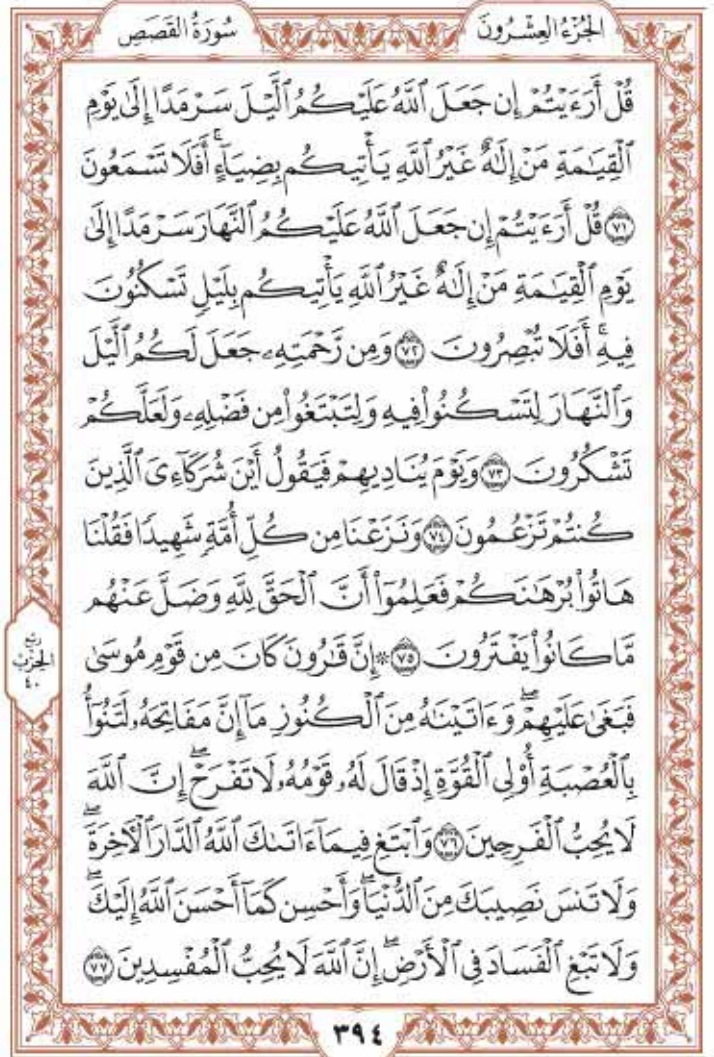 الجُزْءُ العِشْرُونَ
سُورَةُ القَصَصِ
قُلْ أَرَءَيْتُمْ إِن جَعَلَ ٱللَّهُ عَلَيْكُمُ ٱلَّيْلَ سَرْمَدًا إِلَىٰ يَوْمِ
ٱلْقِيَٰمَةِ مَنْ إِلَٰهٌ غَيْرُ ٱللَّهِ يَأْتِيكُم بِضِيَآءٍۚ أَفَلَا تَسْمَعُونَ
٧١ قُلْ أَرَءَيْتُمْ إِن جَعَلَ ٱللَّهُ عَلَيْكُمُ ٱلنَّهَارَ سَرْمَدًا إِلَىٰ
يَوْمِ ٱلْقِيَٰمَةِ مَنْ إِلَٰهٌ غَيْرُ ٱللَّهِ يَأْتِيكُم بِلَيْلٍ تَسْكُنُونَ
فِيهِۚ أَفَلَا تُبْصِرُونَ ٧٢ وَمِن رَّحْمَتِهِۦ جَعَلَ لَكُمُ ٱلَّيْلَ
وَٱلنَّهَارَ لِتَسْكُنُوا۟ فِيهِ وَلِتَبْتَغُوا۟ مِن فَضْلِهِۦ وَلَعَلَّكُمْ
تَشْكُرُونَ ٧٣ وَيَوْمَ يُنَادِيهِمْ فَيَقُولُ أَيْنَ شُرَكَآءِىَ ٱلَّذِينَ
كُنتُمْ تَزْعُمُونَ ٧٤ وَنَزَعْنَا مِن كُلِّ أُمَّةٍ شَهِيدًا فَقُلْنَا
هَاتُوا۟ بُرْهَٰنَكُمْ فَعَلِمُوٓا۟ أَنَّ ٱلْحَقَّ لِلَّهِ وَضَلَّ عَنْهُم
مَّا كَانُوا۟ يَفْتَرُونَ ٧٥ ۞ إِنَّ قَٰرُونَ كَانَ مِن قَوْمِ مُوسَىٰ
فَبَغَىٰ عَلَيْهِمْۖ وَءَاتَيْنَٰهُ مِنَ ٱلْكُنُوزِ مَآ إِنَّ مَفَاتِحَهُۥ لَتَنُوٓأُ
بِٱلْعُصْبَةِ أُو۟لِى ٱلْقُوَّةِ إِذْ قَالَ لَهُۥ قَوْمُهُۥ لَا تَفْرَحْۖ إِنَّ ٱللَّهَ
لَا يُحِبُّ ٱلْفَرِحِينَ ٧٦ وَٱبْتَغِ فِيمَآ ءَاتَىٰكَ ٱللَّهُ ٱلدَّارَ ٱلْءَاخِرَةَۖ
وَلَا تَنسَ نَصِيبَكَ مِنَ ٱلدُّنْيَاۖ وَأَحْسِن كَمَآ أَحْسَنَ ٱللَّهُ إِلَيْكَۖ
وَلَا تَبْغِ ٱلْفَسَادَ فِى ٱلْأَرْضِۖ إِنَّ ٱللَّهَ لَا يُحِبُّ ٱلْمُفْسِدِينَ ٧٧
ربع
الحِزْبُ
٤٠
٣٩٤